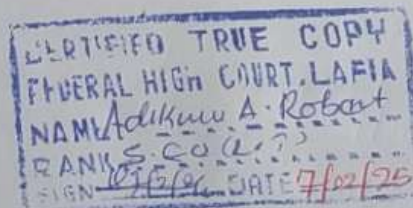 CERTIFIED TRUE COPY
FEDERAL HIGH COURT, LAFIA
NAME Adikwu A. Robert
RANK S.CO (LIT)
SIGN DATE 7/02/25